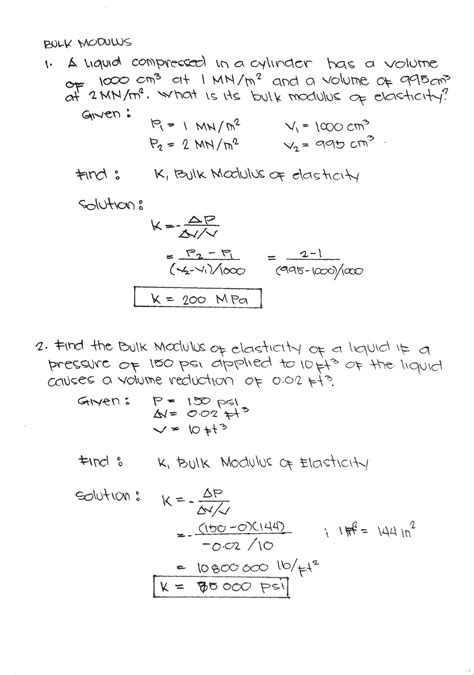 BULK MODULUS
1. A liquid compressed in a cylinder has a volume
of 1000 cm³ at 1 MN/m² and a volume of 995 cm³
at 2 MN/m². What is its bulk modulus of elasticity?
Given:
P₁ = 1 MN/m² V₁ = 1000 cm³
P₂ = 2 MN/m² V₂ = 995 cm³
Find: K, Bulk Modulus of elasticity
Solution:
K = - ΔP / ΔV/V
= P₂ - P₁ / (V₂-V₁)/1000 = 2-1 / (995-1000)/1000
K = 200 MPa
2. Find the Bulk Modulus of elasticity of a liquid if a
pressure of 150 psi applied to 10 ft³ of the liquid
causes a volume reduction of 0.02 ft³.
Given: P = 150 psi
ΔV = 0.02 ft³
V = 10 ft³
Find: K, Bulk Modulus of Elasticity
Solution: K = - ΔP / ΔV/V
= - (150-0)(144) / -0.02/10 ; 1 ft² = 144 in²
= 10800000 lb/ft²
K = 000 psi